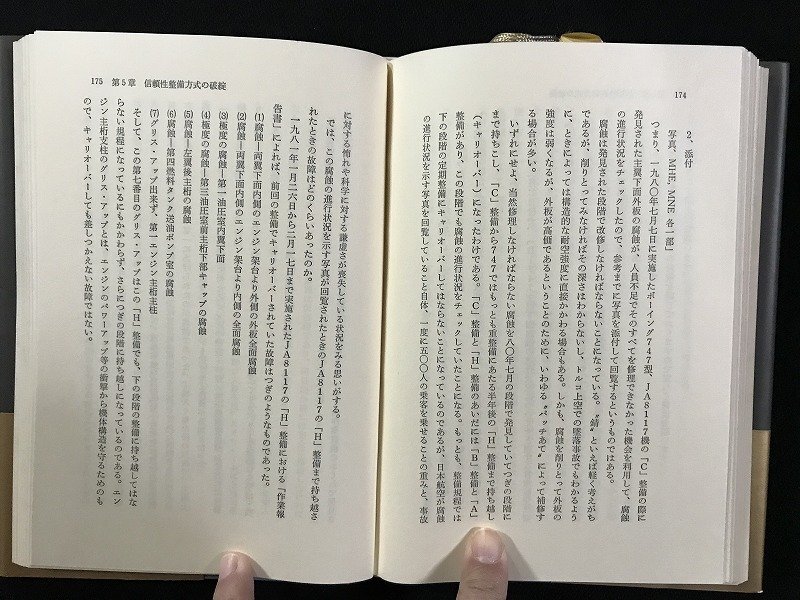 174
2、添付
写真、MHE、MNE 各一部」
つまり、一九八〇年七月七日に実施したボーイング747型、JA8117機の「C」整備の際に
発見された主翼下面外板の腐蝕が、人員不足でそのすべてを修理できなかった機会を利用して、腐蝕
の進行状況をチェックしたので、参考までに写真を添付して回覧するというものである。
腐蝕は発見された段階で改修しなければならないことになっている。“錆”といえば軽く考えがち
であるが、削りとってみなければその深さはわからないし、トルコ上空での墜落事故でもわかるよう
に、ときによっては構造的な耐空強度に直接かかわる場合もある。しかも、腐蝕を削りとって外板の
強度は弱くなるが、外板が高価であるということのために、いわゆる“パッチあて”によって補修す
る場合が多い。
いずれにせよ、当然修理しなければならない腐蝕を八〇年七月の段階で発見していてつぎの段階に
まで持ちこし、「C」整備から747ではもっとも重整備にあたる半年後の「H」整備まで持ち越し
(キャリオーバー)になったわけである。「C」整備と「H」整備のあいだには「B」整備と「A」
整備があり、この段階でも腐蝕の進行状況をチェックしていたことになる。もっとも、整備規程では
下の段階の定期整備にキャリオーバーしてはならないことになっているのであるが、日本航空が腐蝕
の進行状況を示す写真を回覧していること自体、一度に五〇〇人の乗客を乗せることの重みと、事故
175 第5章 信頼性整備方式の破綻
に対する怖れや科学に対する謙虚さが喪失している状況をみる思いがする。
では、この腐蝕の進行状況を示す写真が回覧されたときのJA8117の「H」整備まで持ち越さ
れたときの故障はどのくらいあったのか。
一九八一年一月二六日から二月一七日まで実施されたJA8117の「H」整備における「作業報
告書」によれば、前回の整備でキャリオーバーされていた故障はつぎのようなものであった。
(1) 腐蝕―両翼下面内側のエンジン架台より外側の外板全面腐蝕
(2) 腐蝕―両翼下面内側のエンジン架台より内側の全面腐蝕
(3) 極度の腐蝕―第一油圧室内翼下面
(4) 極度の腐蝕―第三油圧室前主桁下部キャップの腐蝕
(5) 腐蝕―左翼後主桁の腐蝕
(6) 腐蝕―第四燃料タンク送油ポンプ室の腐蝕
(7) グリス・アップ出来ず、第一エンジン主桁主柱
そして、この第七番目のグリス・アップはこの「H」整備でも、下の段階の整備に持ち越してはな
らない規程になっているにもかかわらず、さらにつぎの段階に持ち越しになっているのである。エン
ジン主桁支柱のグリス・アップとは、エンジンのパワーアップ等の衝撃から機体構造を守るためのも
ので、キャリオーバーしても差しつかえない故障ではない。